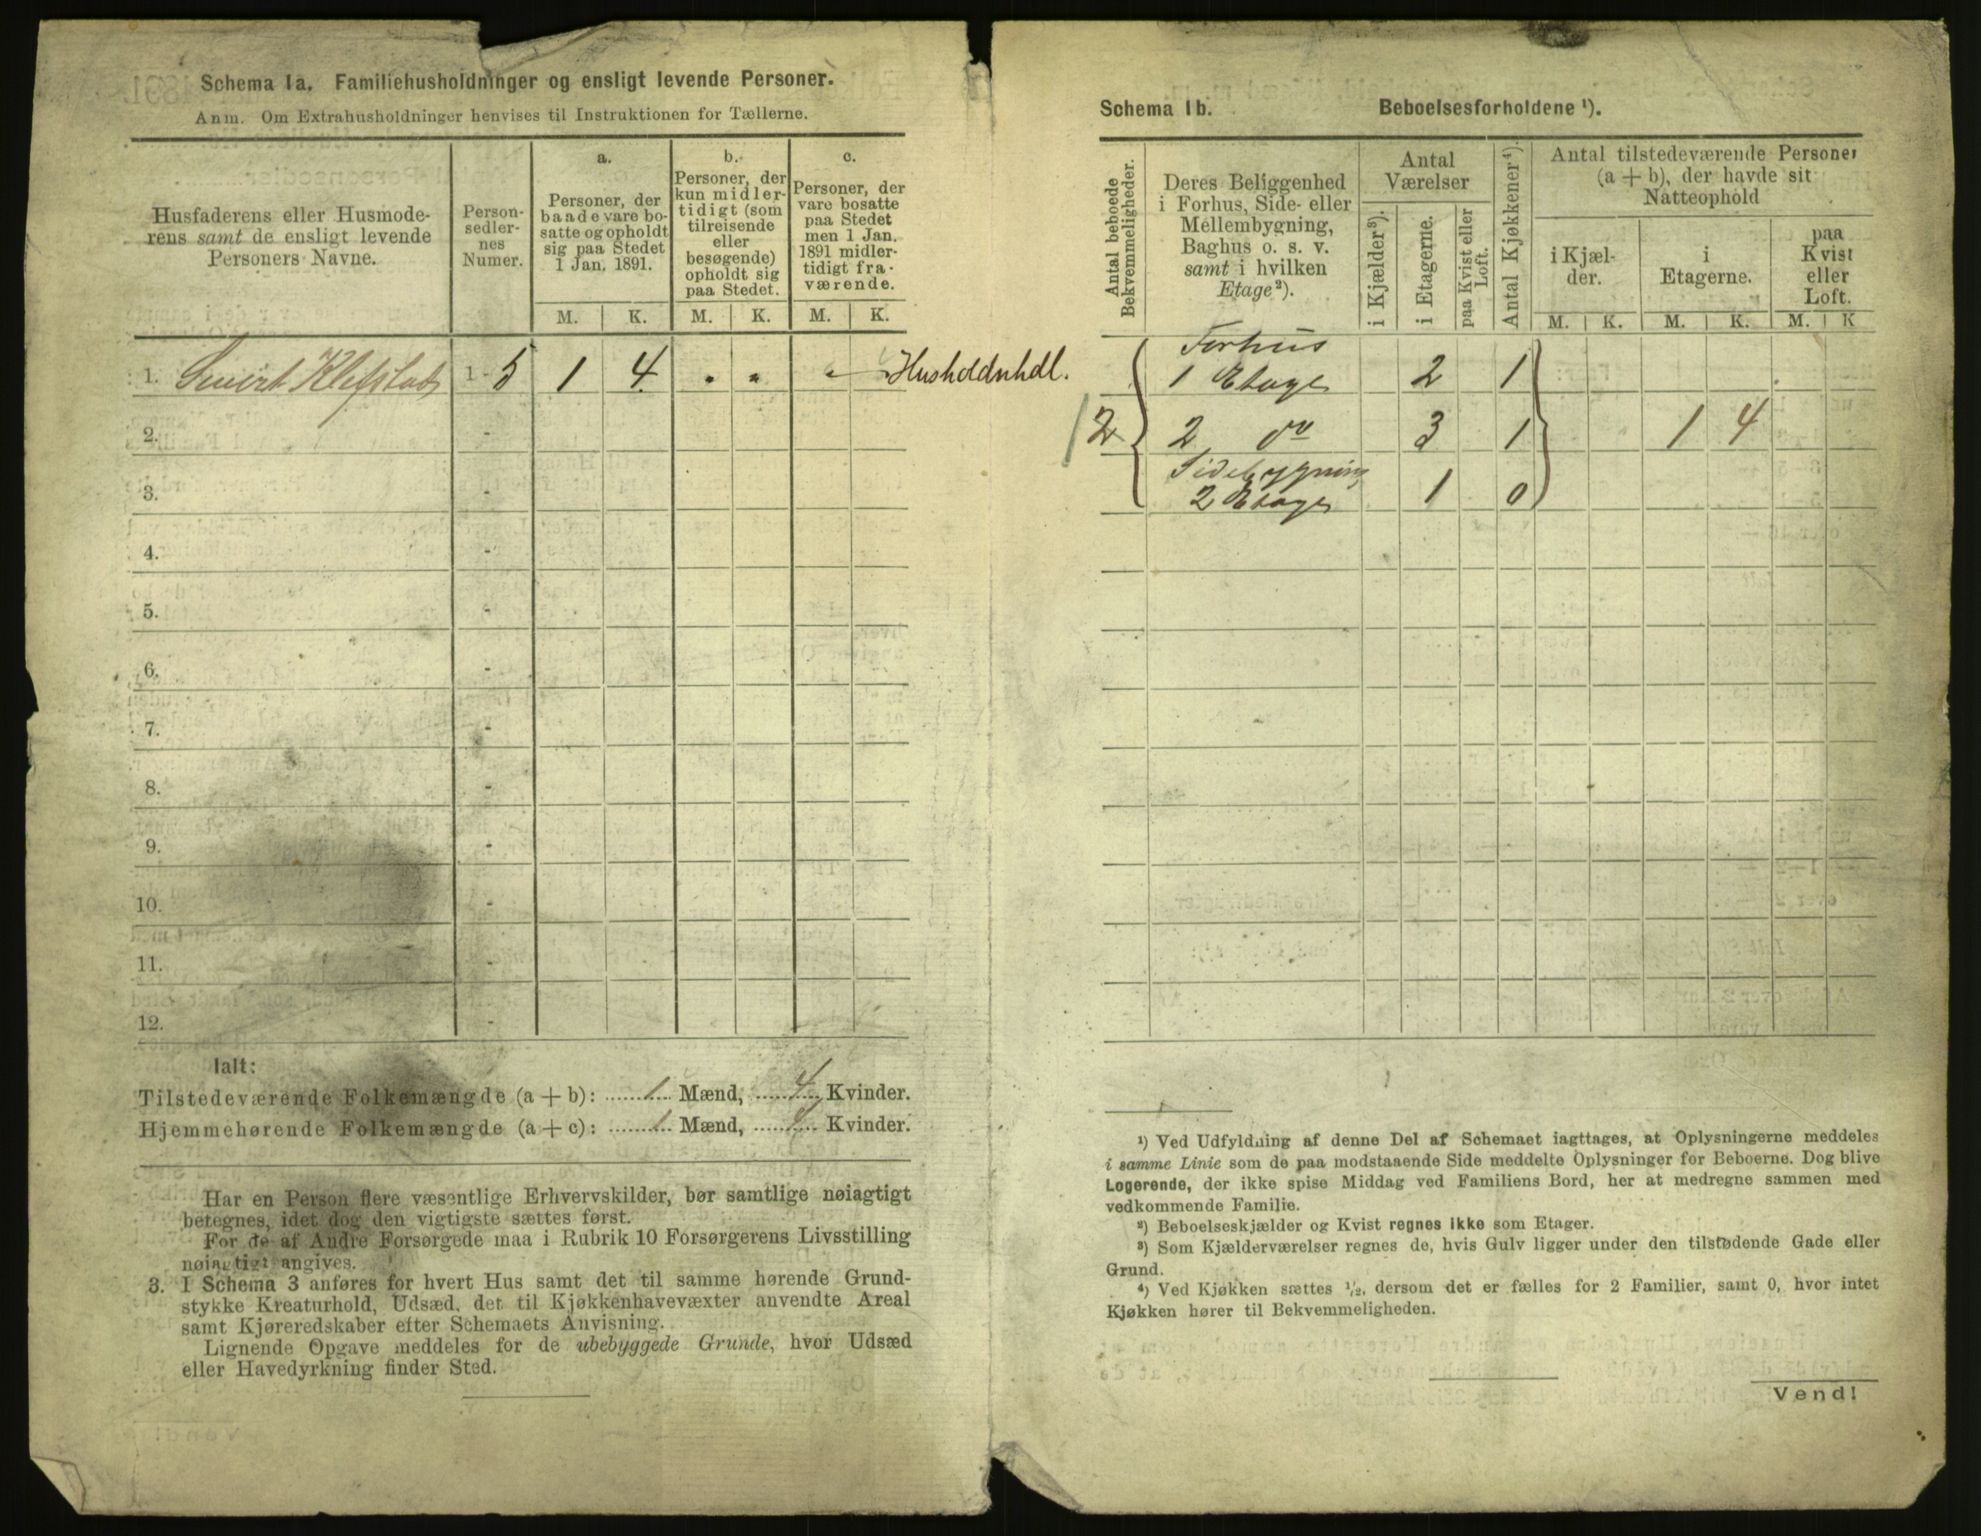 Schema 1a. Familiehusholdninger og ensligt levende Personer.
Anm. Om Extrahusholdninger henvises til Instruktionen for Tællerne.
Husfaderens eller Husmode-
rens samt de ensligt levende
Personers Navne.
Person-
sedler-
nes
Numer.
a.
Personer, der
baade vare bo-
satte og opholdt
sig paa Stedet
1 Jan. 1891.
M. K.
b.
Personer, der
kun midler-
tidigt (som
tilreisende
eller
besøgende)
opholdt sig
paa Stedet.
M. K.
c.
Personer, der
vare bosatte
paa Stedet
men 1 Jan.
1891 midler-
tidigt fra-
værende.
M. K.
1. Sivert Klefstad 1 - 5 1 4 Husholdnhdl.
2. -
3. -
4. -
5. -
6. -
7. -
8. -
9. -
10. -
11. -
12. -
Ialt:
Tilstedeværende Folkemængde (a + b): 1 Mænd, 4 Kvinder.
Hjemmehørende Folkemængde (a + c): 1 Mænd, 4 Kvinder.
Har en Person flere væsentlige Erhvervskilder, bør samtlige nøiagtigt
betegnes, idet dog den vigtigste sættes først.
For de af Andre Forsørgede maa i Rubrik 10 Forsørgerens Livsstilling
nøiagtigt angives.
3. I Schema 3 anføres for hvert Hus samt det til samme hørende Grund-
stykke Kreaturhold, Udsæd, det til Kjøkkenhavevæxter anvendte Areal
samt Kjøreredskaber efter Schemaets Anvisning.
Lignende Opgave meddeles for de ubebyggede Grunde, hvor Udsæd
eller Havedyrkning finder Sted.
Schema 1b. Beboelsesforholdene ¹).
Antal beboede
Bekvemmeligheder.
Deres Beliggenhed
i Forhus, Side- eller
Mellembygning,
Baghus o. s. v.
samt i hvilken
Etage ²).
Antal
Værelser
i Kjælder ³).
i Etagerne.
paa Kvist eller
Loft.
Antal Kjøkkener ⁴).
Antal tilstedeværende Personer
(a + b), der havde sit
Natteophold
i Kjæl-
der.
M. K.
i
Etagerne.
M. K.
paa
Kvist
eller
Loft.
M. K
Forhus
1 Etage 2 1
2 2 do 3 1 1 4
Sidebygning
2 Etage 1 0
¹) Ved Udfyldning af denne Del af Schemaet iagttages, at Oplysningerne meddeles
i samme Linie som de paa modstaaende Side meddelte Oplysninger for Beboerne. Dog blive
Logerende, der ikke spise Middag ved Familiens Bord, her at medregne sammen med
vedkommende Familie.
²) Beboelseskjælder og Kvist regnes ikke som Etager.
³) Som Kjælderværelser regnes de, hvis Gulv ligger under den tilstødende Gade eller
Grund.
⁴) Ved Kjøkken sættes ¹/₂, dersom det er fælles for 2 Familier, samt 0, hvor intet
Kjøkken hører til Bekvemmeligheden.
Vend!